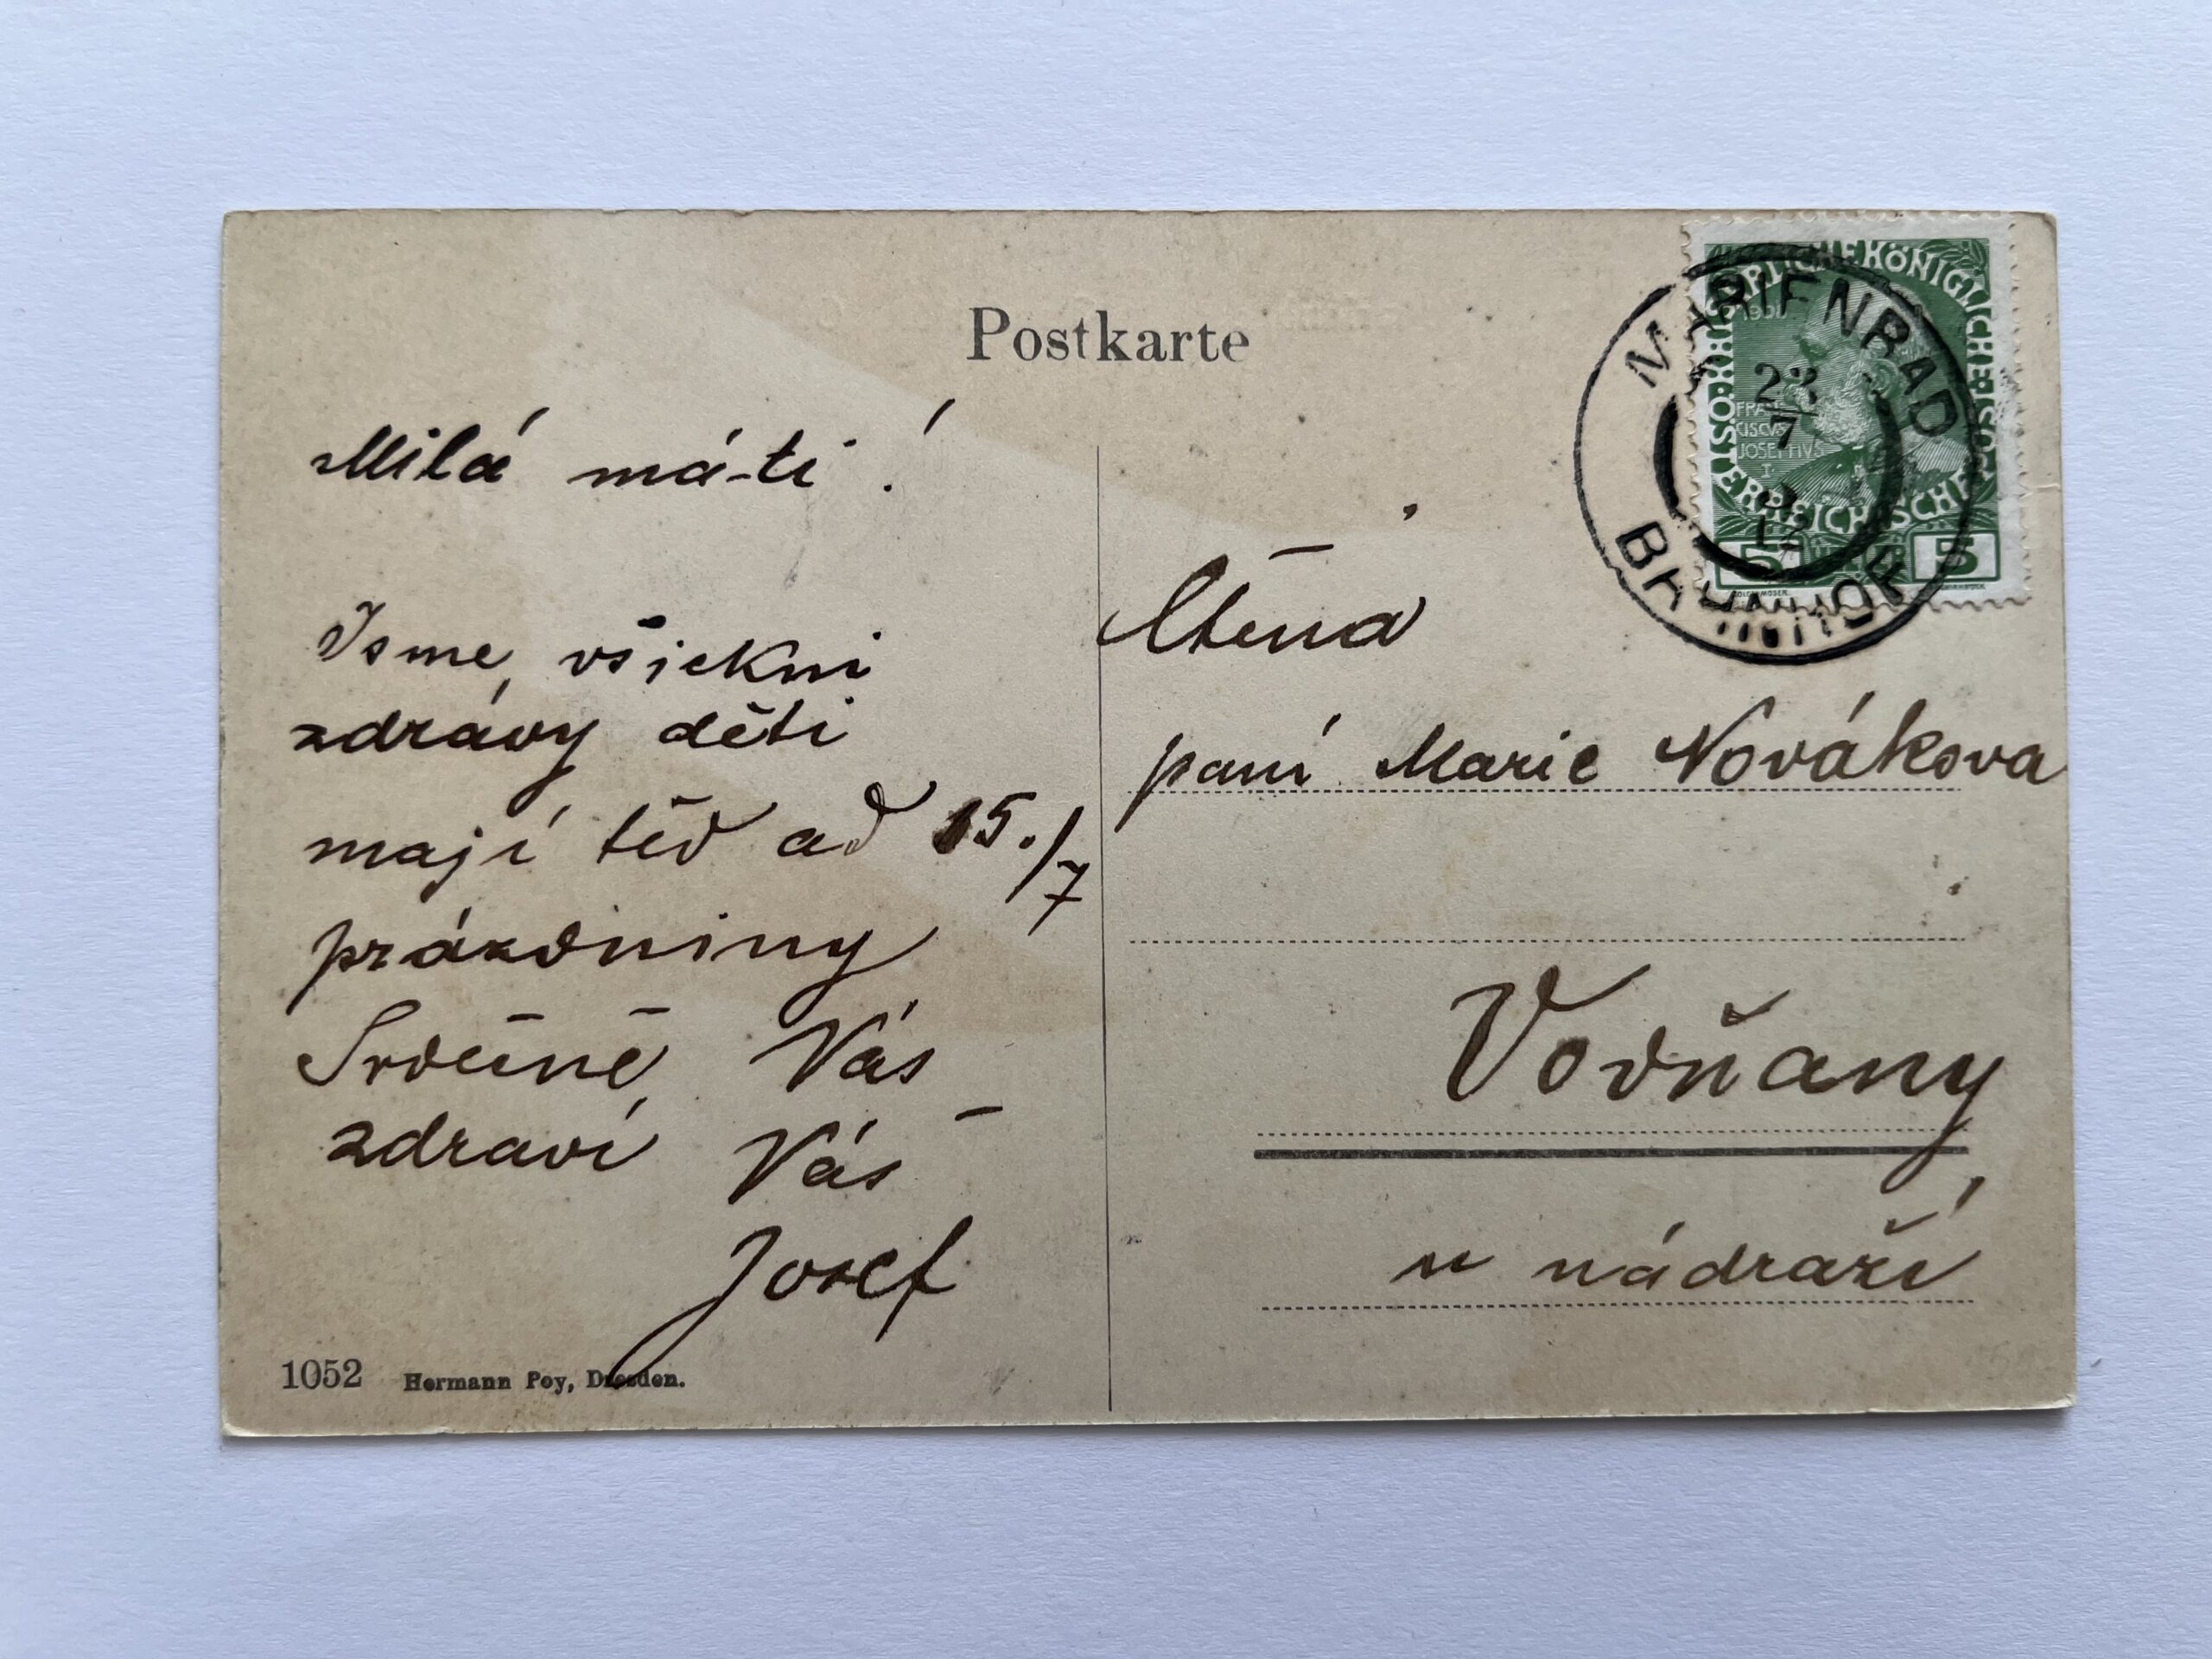 Postkarte
Milá máti!
Jsme všickni
zdrávy děti
mají těď od 15./7
prázdniny
Srdečně Vás
zdraví Váš
Josef
1052 Hermann Poy, Dresden.
MARIENBAD
22
7
BAHNHOF
KAISERLICHE KÖNIGLICHE ÖSTERREICHISCHE
FRAN
CISCVS
JOSEPHVS
I
5 HELLER 5
Ctěná
paní Marie Novákova
Vodňany
u nádraží